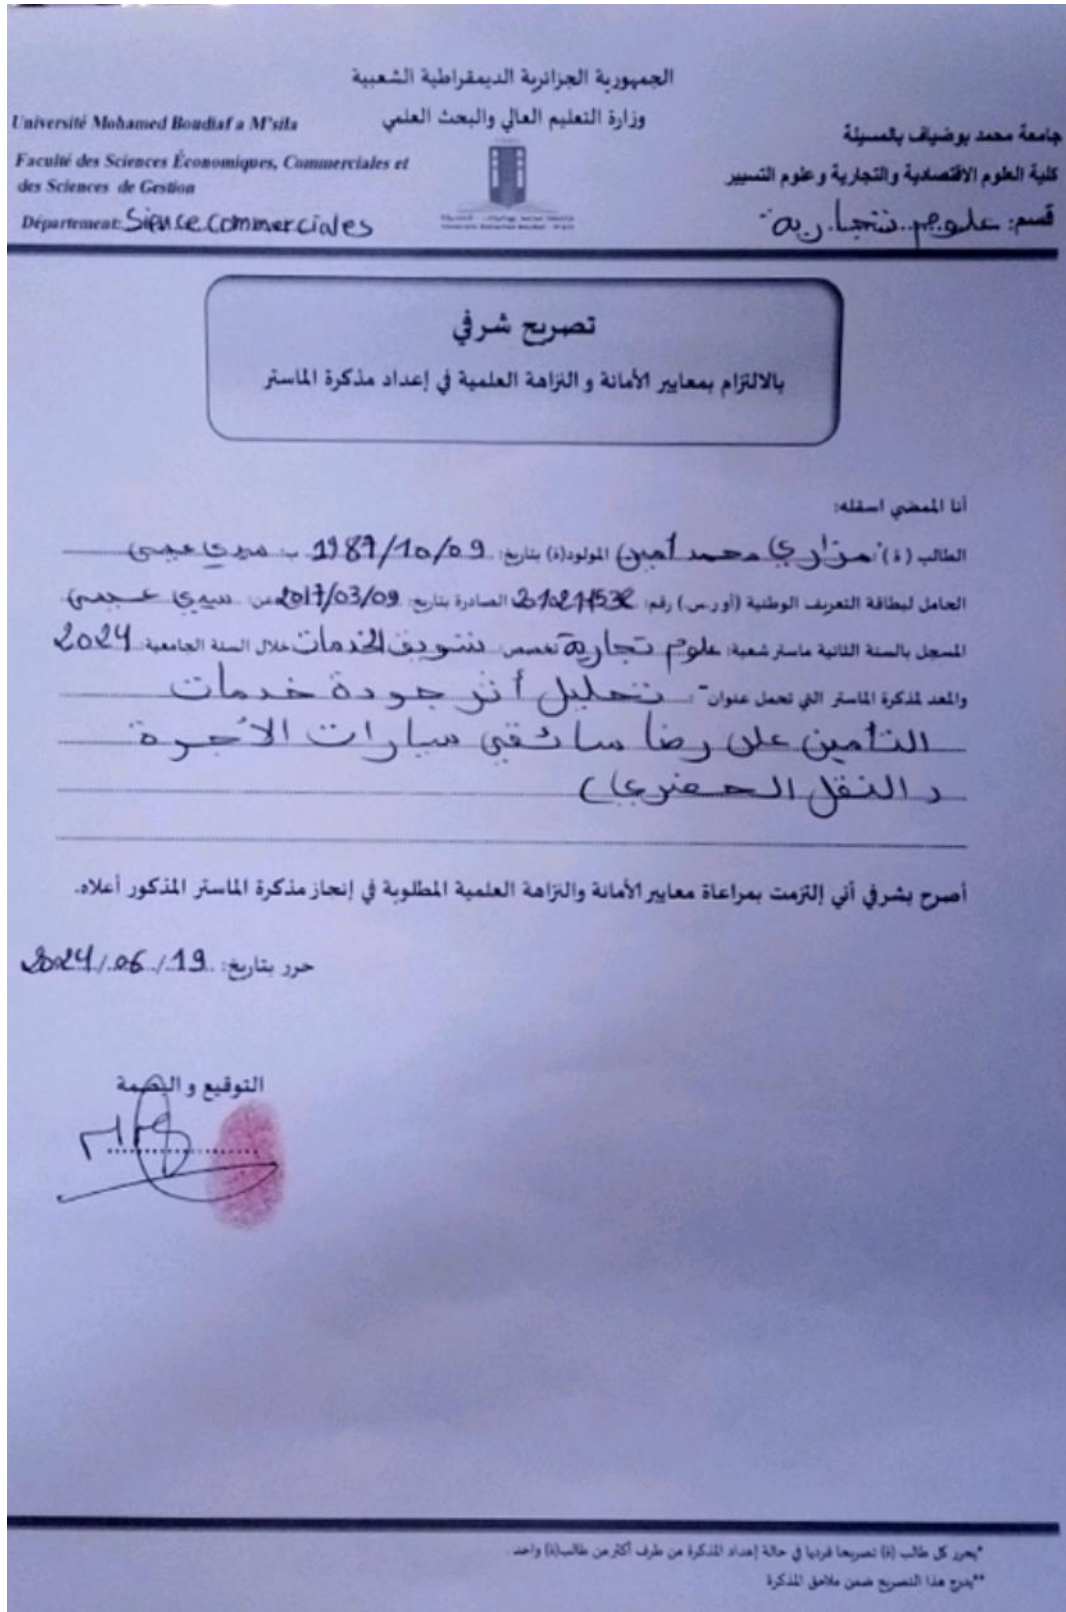 الجمهورية الجزائرية الديمقراطية الشعبية
وزارة التعليم العالي والبحث العلمي
جامعة محمد بوضياف بالمسيلة
كلية العلوم الاقتصادية والتجارية وعلوم التسيير
قسم: علوم تجارية
Université Mohamed Boudiaf a M'sila
Faculté des Sciences Économiques, Commerciales et
des Sciences de Gestion
Département: Sience Commerciales
تصريح شرفي
بالالتزام بمعايير الأمانة و النزاهة العلمية في إعداد مذكرة الماستر
أنا الممضي اسفله:
الطالب (ة): مزاري محمد أمين المولود(ة) بتاريخ: 1987/10/09 ب: سيدي عيسى
الحامل لبطاقة التعريف الوطنية (أو ر.س) رقم: الصادرة بتاريخ: 2017/03/09 عن: سيدي عيسى
المسجل بالسنة الثانية ماستر شعبة: علوم تجارية تخصص: تسويق الخدمات خلال السنة الجامعية: 2024
والمعد لمذكرة الماستر التي تحمل عنوان: تحليل أثر جودة خدمات
التأمين على رضا سائقي سيارات الأجرة
( النقل الحضري )
أصرح بشرفي أني إلتزمت بمراعاة معايير الأمانة والنزاهة العلمية المطلوبة في إنجاز مذكرة الماستر المذكور أعلاه.
حرر بتاريخ: 2024/06/19
التوقيع و البصمة
*يحرر كل طالب (ة) تصريحا فرديا في حالة إعداد المذكرة من طرف أكثر من طالب(ة) واحد
**يدرج هذا التصريح ضمن ملاحق المذكرة